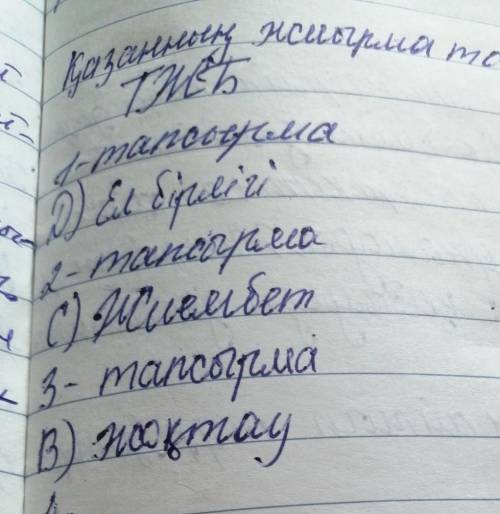 Қазанның жиырма то
ТЖБ
1-тапсырма
D) Ел бірлігі
2-тапсырма
C) Жиембет
3-тапсырма
B) жоқтау